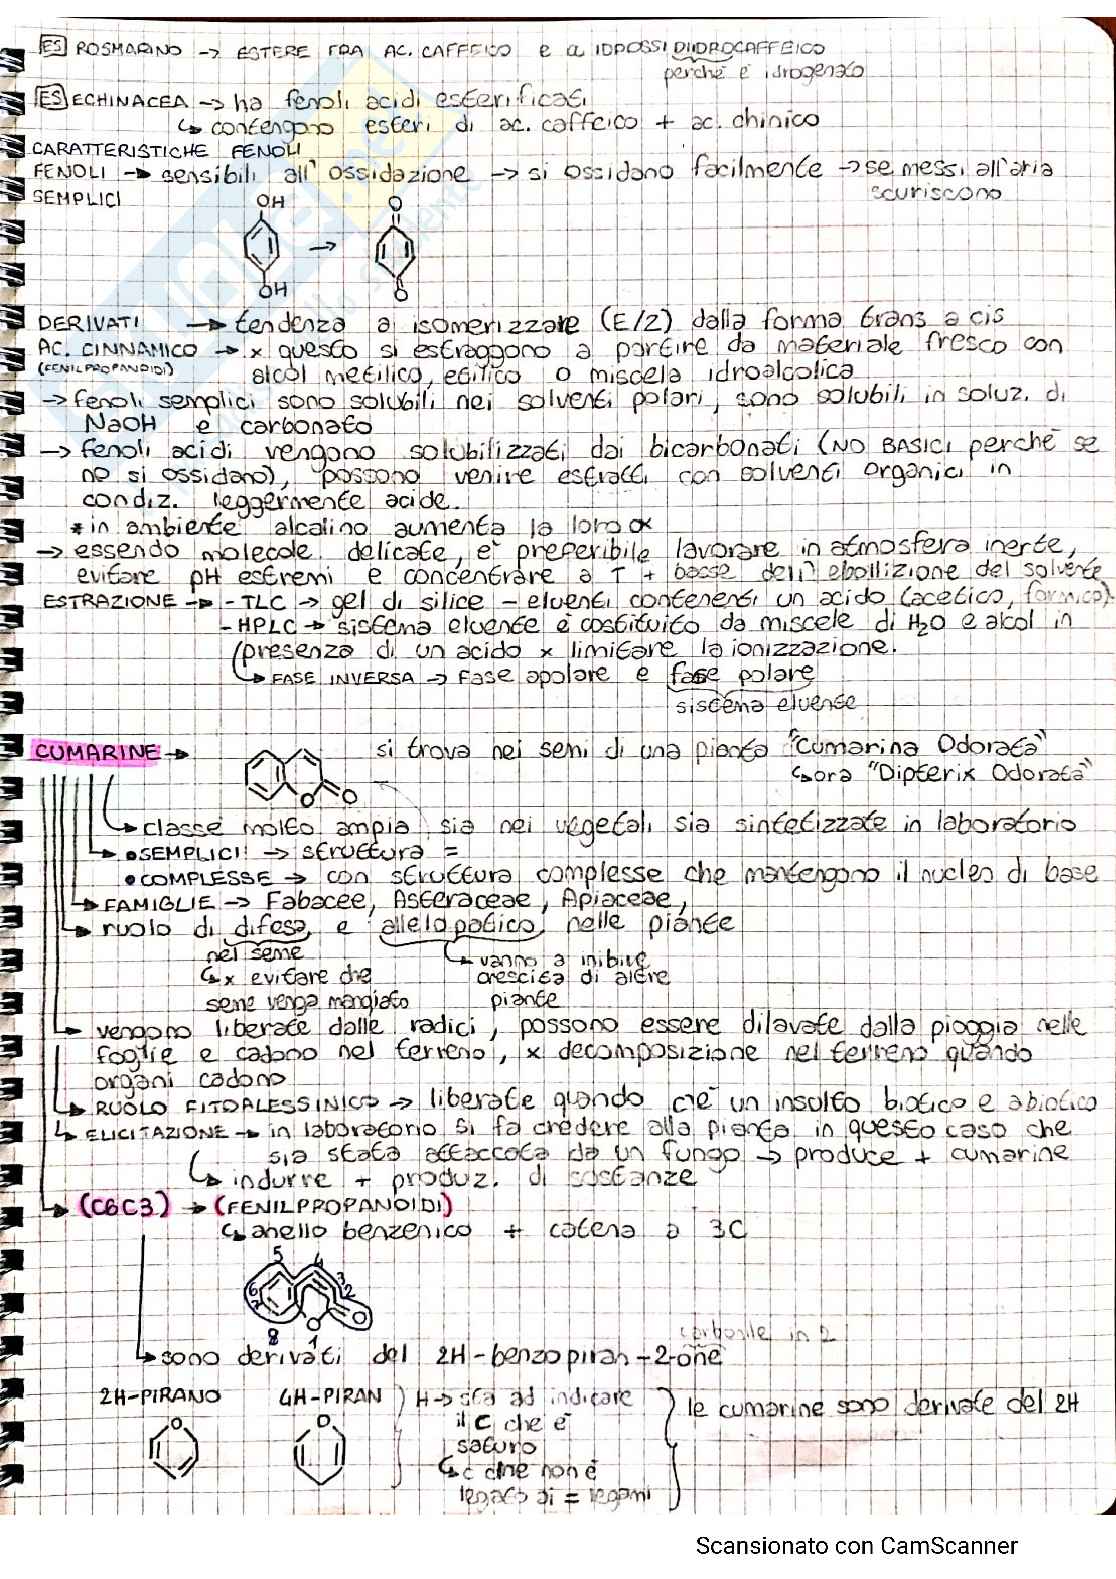 ES ROSMARINO → ESTERE FRA AC. CAFFEICO e a IDROSSI DIIDROCAFFEICO
perché è idrogenato
ES ECHINACEA → ha fenoli acidi esterificati
↳ contengono esteri di ac. caffeico + ac. chinico
CARATTERISTICHE FENOLI
FENOLI → sensibili all'ossidazione → si ossidano facilmente → se messi all'aria
SEMPLICI scuriscono
OH O
→
OH O
DERIVATI → tendenza a isomerizzare (E/Z) dalla forma trans a cis
AC. CINNAMICO → x questo si estraggono a partire da materiale fresco con
(FENILPROPANOIDI) alcol metilico, etilico o miscela idroalcolica
→ fenoli semplici sono solubili nei solventi polari, sono solubili in soluz. di
NaOH e carbonato
→ fenoli acidi vengono solubilizzati dai bicarbonati (NO BASICI perché se
no si ossidano), possono venire estratti con solventi organici in
condiz. leggermente acide.
* in ambiente alcalino aumenta la loro α
→ essendo molecole delicate, è preferibile lavorare in atmosfera inerte,
evitare pH estremi e concentrare a T + basse dell'ebollizione del solvente
ESTRAZIONE → - TLC → gel di silice - eluenti contenenti un acido (acetico, formico).
- HPLC → sistema eluente è costituito da miscele di H₂O e alcol in
presenza di un acido x limitare la ionizzazione.
↳ FASE INVERSA → Fase apolare e fase polare
sistema eluente
CUMARINE → si trova nei semi di una pianta "Cumarina Odorata"
↳ ora "Dipterix Odorata"
O O
↳ classe molto ampia sia nei vegetali sia sintetizzate in laboratorio
↳ • SEMPLICI: → struttura =
• COMPLESSE → con struttura complesse che mantengono il nucleo di base
↳ FAMIGLIE → Fabacee, Asteraceae, Apiaceae,
↳ ruolo di difesa e allelopatico nelle piante
nel seme ↳ vanno a inibire
↳ x evitare che crescita di altre
seme venga mangiato piante
↳ vengono liberate dalle radici, possono essere dilavate dalla pioggia nelle
foglie e cadono nel terreno, x decomposizione nel terreno quando
organi cadono
↳ RUOLO FITOALESSINICO → liberate quando c'è un insulto biotico e abiotico
↳ ELICITAZIONE → in laboratorio si fa credere alla pianta in questo caso che
sia stata attaccata da un fungo → produce + cumarine
↳ indurre + produz. di sostanze
↳ (C6C3) → (FENILPROPANOIDI)
↳ anello benzenico + catena a 3C
5 4
6 3
7 2
O O
8 1
carbonile in 2
↳ sono derivati del 2H-benzopiran-2-one
2H-PIRANO 4H-PIRAN ) H → sta ad indicare le cumarine sono derivate del 2H
O O il C che è
saturo
↳ C che non è
legato di = legami
Scansionato con CamScanner